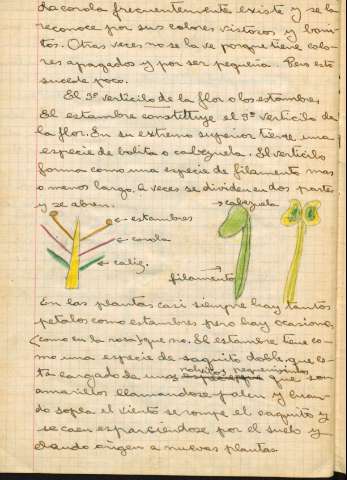 La corola frecuentemente existe y se la
reconoce por sus colores vistosos y boni-
tos. Otras veces no se la ve porque tiene colo-
res apagados y por ser pequeña. Pero esto
sucede poco.
El 3º verticilo de la flor o los estambres.
El estambre constituye el 3º verticilo de
la flor. En su extremo superior tiene una
especie de bolita o cabezuela. El verticilo
forma como una especie de filamento mas
o menos largo, a veces se divide en dos partes
y se abren.
cabezuela
estambres
corola
caliz.
filamento
En las plantas casi siempre hay tantos
petalos como estambres pero hay ocasiones
(como en la rosa) que no. El estambre tiene co-
mo una especie de saquito doble que es-
ta cargado de unos polvitos pequeñisimos que son
amarillos llamandose polen y cuan-
do sopla el viento se rompe el saquito y
se caen esparciendose por el suelo y
dando origen a nuevas plantas.